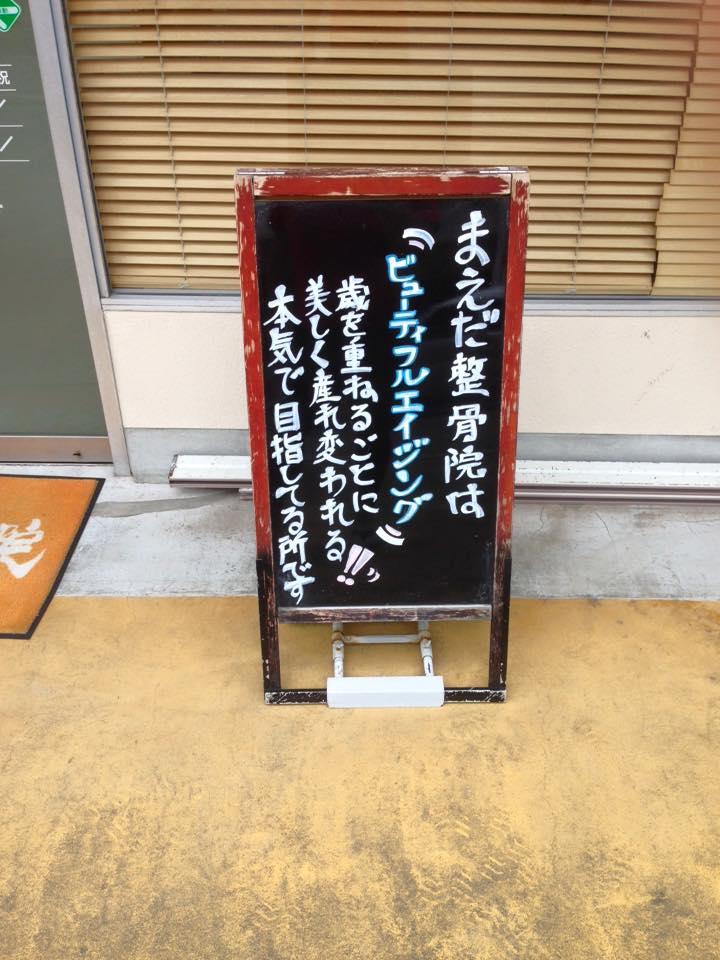 まえだ整骨院は
"ビューティフルエイジング"
歳を重ねるごとに
美しく産れ変われる!!
本気で目指してる所です
祝
院